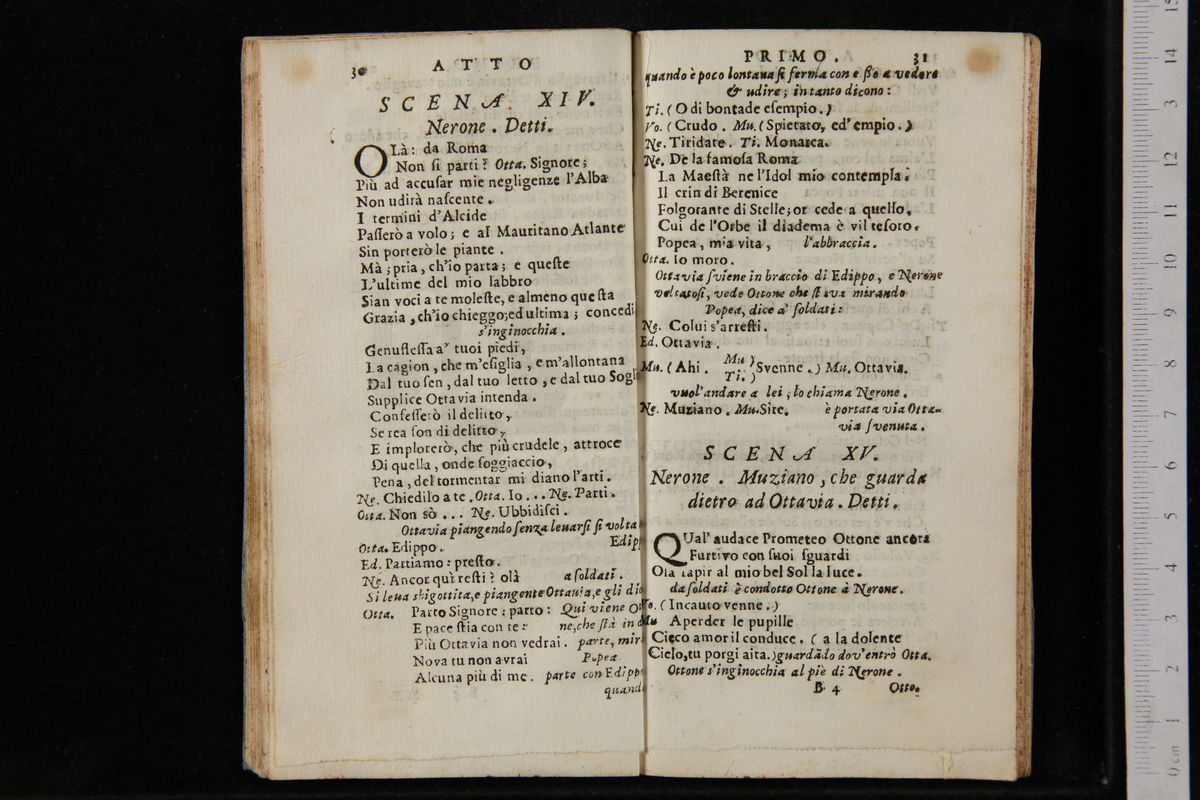 30 ATTO
SCENA XIV.
Nerone. Detti.
OLà: da Roma
Non ſi parti? Otta. Signore;
Più ad accuſar mie negligenze l'Alba
Non udirà naſcente.
I termini d'Alcide
Paſſerò a volo; e al Mauritano Atlante
Sin porterò le piante.
Mà; pria, ch'io parta; e queſte
L'ultime del mio labbro
Sian voci a te moleſte, e almeno queſta
Grazia, ch'io chieggo; ed ultima; concedi
s'inginocchia.
Genufleſſa a' tuoi piedi,
La cagion, che m'eſiglia, e m'allontana
Dal tuo ſen, dal tuo letto, e dal tuo Sogli
Supplice Ottavia intenda.
Confeſſerò il delitto,
Se rea ſon di delitto,
E implorerò, che più crudele, attroce
Di quella, onde ſoggiaccio,
Pena, del tormentar mi diano l'arti.
Ne. Chiedilo a te. Otta. Io... Ne. Parti.
Otta. Non sò... Ne. Ubbidiſci.
Ottavia piangendo ſenza levarſi ſi volta
Otta. Edippo. Edip
Ed. Partiamo: preſto.
Ne. Ancor quì reſti? olà a ſoldati.
Si leva sbigottita, e piangente Ottavia, e gli dic
Otta. Parto Signore; parto: Qui viene O
E pace ſtia con te: ne, che ſtà in d
Più Ottavia non vedrai. parte, mir
Nova tu non avrai Popea
Alcuna più di me. parte con Edipp
quand
PRIMO. 31
quando è poco lontana ſi ferma con eſſo a vedere
& udire; in tanto dicono:
Ti. (O di bontade eſempio.)
Vo. (Crudo. Mu. (Spietato, ed' empio.)
Ne. Tiridate. Ti. Monarca.
Ne. De la famoſa Roma
La Maeſtà ne l'Idol mio contempla;
Il crin di Berenice
Folgorante di Stelle; or cede a queſſo,
Cui de l'Orbe il diadema è vil teſoro.
Popea, mia vita, l'abbraccia.
Otta. Io moro.
Ottavia ſviene in braccio di Edippo, e Nerone
voltatoſi, vede Ottone che ſi sva mirando
Popea, dice a' ſoldati:
Ne. Colui s'arreſti.
Ed. Ottavia.
Mu )
Mu. (Ahi. Svenne.) Mu. Ottavia.
Ti. )
vuol'andare a lei, lo chiama Nerone.
Ne. Muziano. Mu. Sire. è portata via Otta-
via ſvenuta.
SCENA XV.
Nerone. Muziano, che guarda
dietro ad Ottavia. Detti.
QUal' audace Prometeo Ottone ancora
Furtivo con ſuoi ſguardi
Oſa rapir al mio bel Sol la luce.
da ſoldati è condotto Ottone à Nerone.
Vo. (Incauto venne.)
Mu Aperder le pupille
Cieco amor il conduce. (a la dolente
Cielo, tu porgi aita.) guardādo dov'entrò Otta.
Ottone s'inginocchia al piè di Nerone.
B 4 Otto.